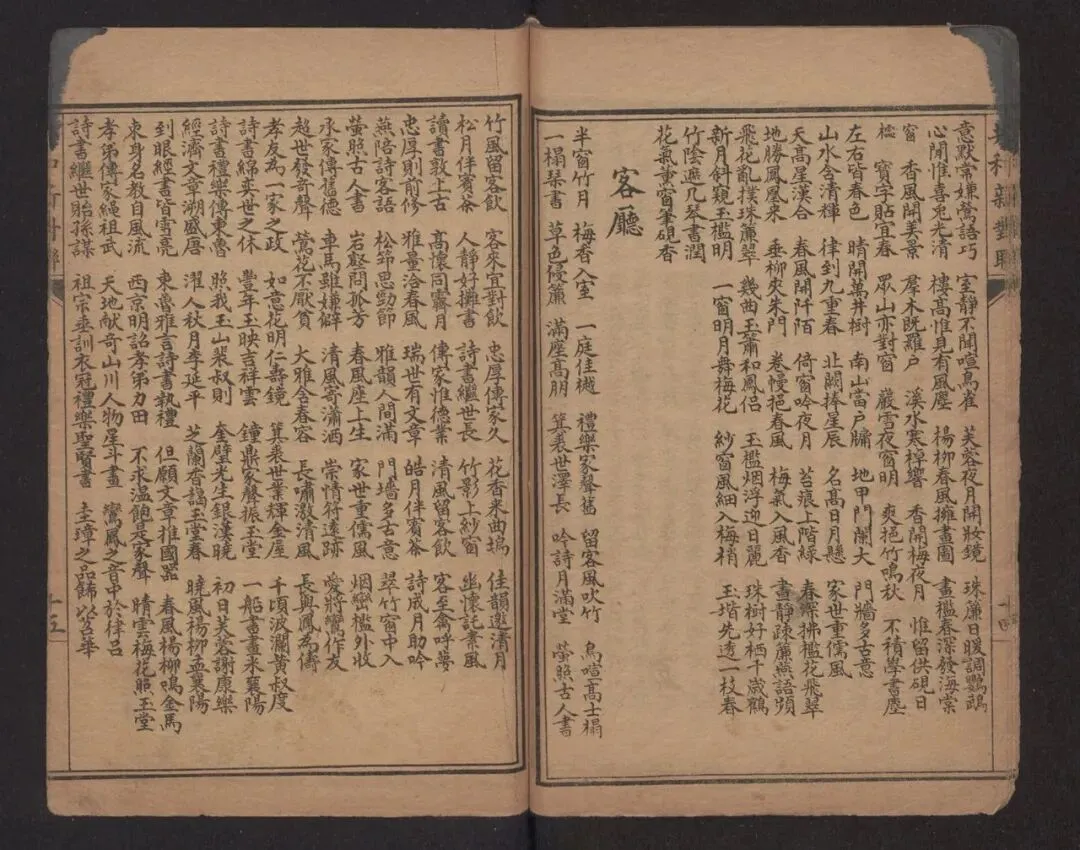 意默常嫌鶯語巧 室靜不聞喧鳥雀 芙蓉夜月開妝鏡 珠簾日暖調鸚鵡
心閒惟喜兎光清 樓高惟見有風塵 楊柳春風擁畫圖 畫檻春深發海棠
窗 香風開美景 羣木既羅戶 溪水寒棹響 香開梅夜月 惟留供硯日
櫺 寶字貼宜春 眾山亦對窗 嚴雪夜窗明 爽挹竹鳴秋 不積學書塵
左右皆春色 晴開萬井樹 南山當户牖 地甲門闌大 門牆多古意
山水含清輝 律到九重春 北闕捧星辰 名高日月懸 家世重儒風
天高星漢合 春風開阡陌 倚窗吟夜月 苔痕上階綠 春深拂檻花飛翠
地勝鳳凰來 垂柳夾朱門 卷幔挹春風 梅氣入風香 晝靜疎簾燕語頻
飛花亂撲珠簾翠 幾曲玉簫和鳳侶 玉檻烟浮迎日麗 珠樹好栖千歲鶴
新月斜窺玉檻明 一窗明月舞梅花 紗窗風細入梅梢 玉堦先透一枝春
竹陰遮几琴書潤
花氣熏窗筆硯香
客廳
半窗竹月 梅香入室 一庭佳樾 禮樂家聲舊 留客風吹竹 鳥喧高士榻
一榻琴書 草色侵簾 滿座高朋 箕裘世澤長 吟詩月滿堂 螢照古人書
十四
竹風留客飲 客來宜對飲 忠厚傳家久 花香米曲塢 佳韻邀清月
松月伴賓茶 人靜好攤書 詩書繼世長 竹影上紗窗 幽懷託素風
讀書敦上古 高懷同霽月 傳家惟德業 清風留客飲 客至禽呼夢
忠厚則前修 雅量洽春風 瑞世有文章 皓月伴賓茶 詩成月助吟
燕陪詩客語 松節思勁節 雅韻人間滿 門墻多古意 翠竹窗中入
螢照古人書 岩壑問孤芳 春風座上生 家世重儒風 烟巒檻外收
承家傳舊德 車馬雖嫌僻 清風寄瀟洒 崇情符遠跡 愛將鸞作友
超世發奇聲 鶯花不厭貧 大雅含春容 長嘯激清風 長與鳳為儔
孝友為一家之政 如意花明仁壽鏡 箕裘世業輝金屋 千頃波瀾黃叔度
詩書綿奕世之休 豐年玉映吉祥雲 鐘鼎家聲振玉堂 一船書畫米襄陽
詩書禮樂傳東魯 照我玉山裴叔則 奎壁光生銀漢曉 初日芙蓉謝康樂
經濟文章溯盛唐 濯人秋月李延平 芝蘭香謁玉堂春 曉風楊柳孟襄陽
到眼經書皆雪亮 東魯雅言詩書執禮 但願文章推國器 春風楊柳鳴金馬
束身名教自風流 西京明詔孝弟力田 不求溫飽是家聲 晴雲梅花照玉堂
孝弟傳家繩祖武 天地献奇山川人物星斗畫 鸞鳳之音中於律呂
詩書繼世貽孫謀 祖宗垂訓衣冠禮樂聖賢書 圭璋之品飾以苕華
十五